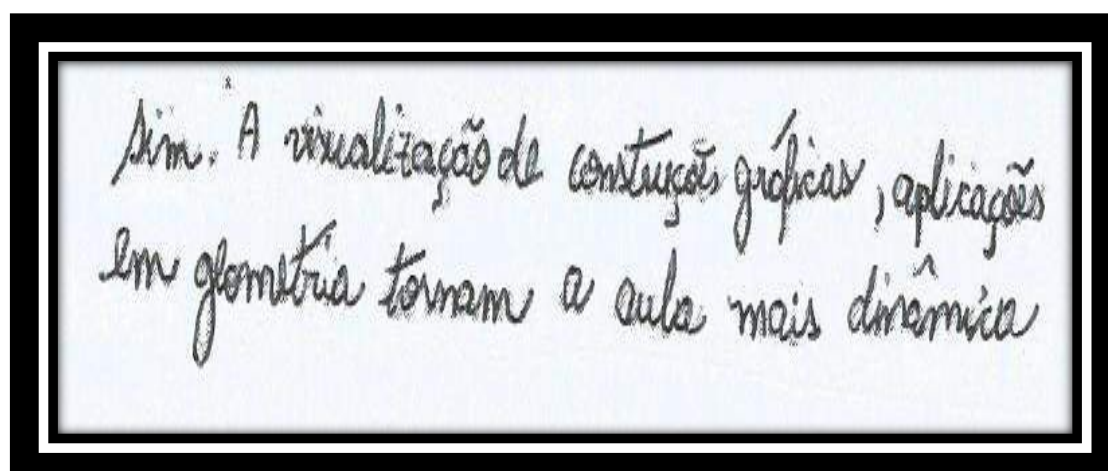 sim. A visualização de constuções gráficas, aplicações
em geometria tornam a aula mais dinâmica